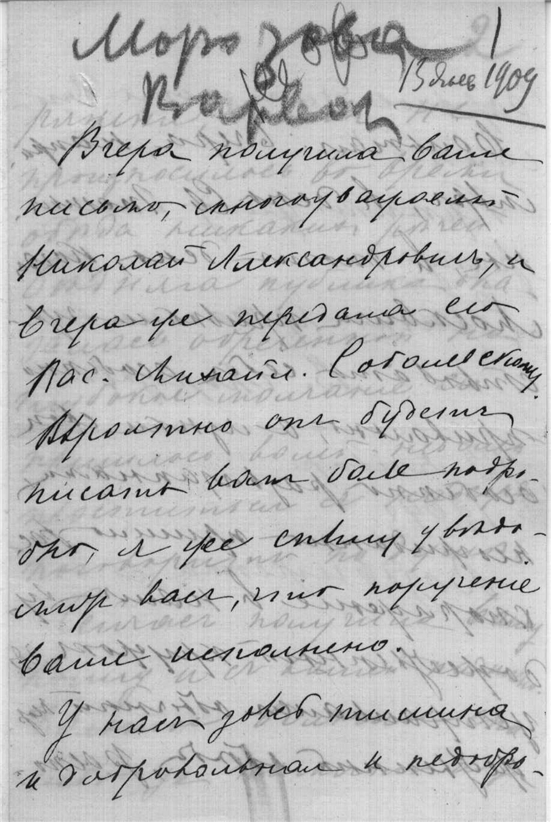 Морозова
Варвара
13 янв 1909
Вчера получила Ваше
письмо, многоуважаемый
Николай Александровичъ, и
вчера же передала его
Вас. Михайл. Соболевскому.
Вѣроятно онъ будетъ
писать вамъ болѣе подро-
бно, я же спѣшу увѣдо-
мить васъ, что порученіе
Ваше исполнено.
У насъ здѣсь тишина
и добровольная и недобро-